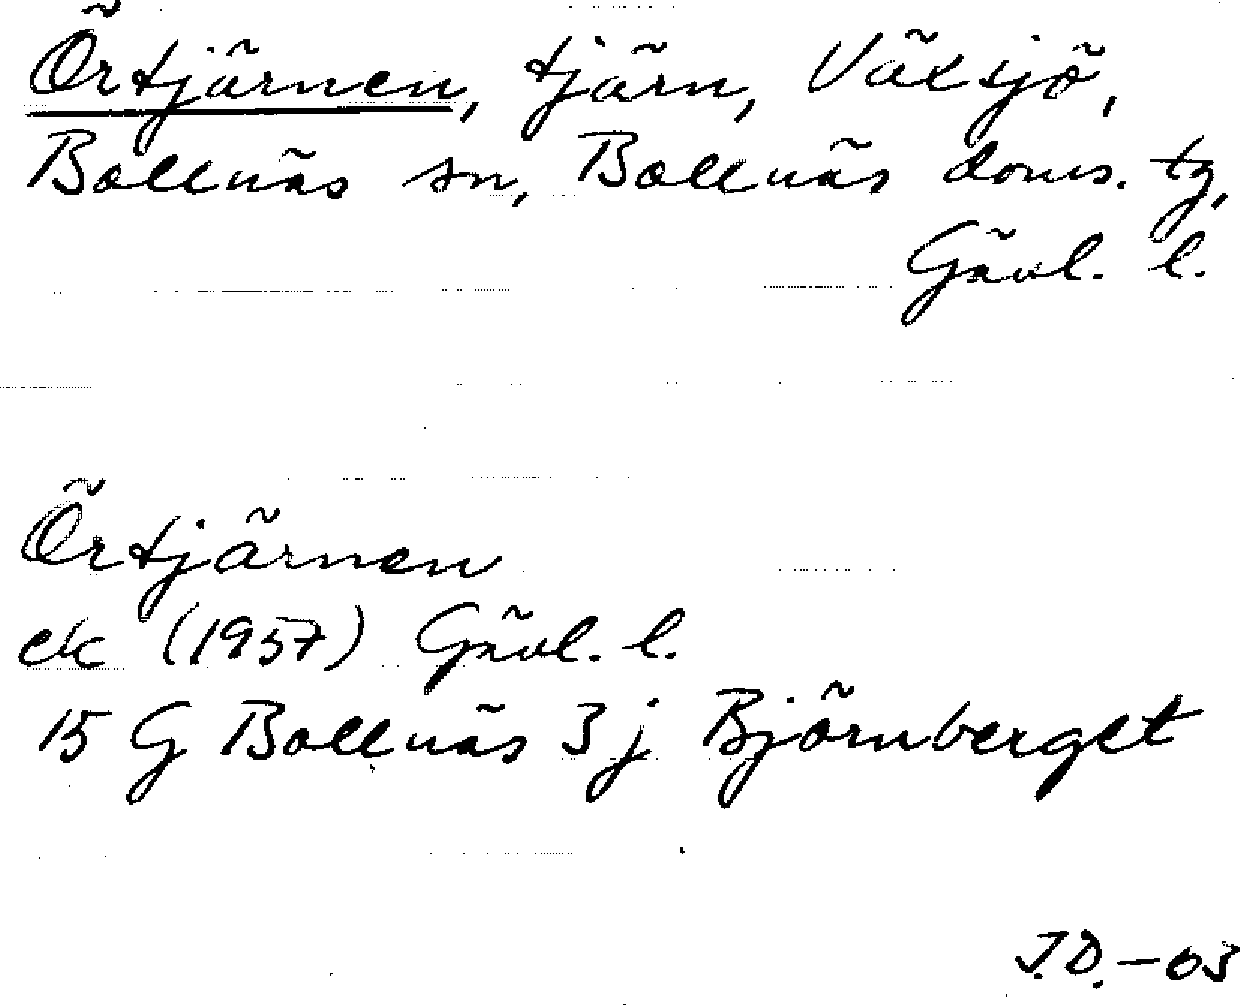 Örtjärnen, tjärn, Växsjö,
Bollnäs sn, Bollnäs doms. tg,
Gävl. l.
Örtjärnen
ek (1957) Gävl. l.
15 G Bollnäs 3j Björnberget
J.D.-03